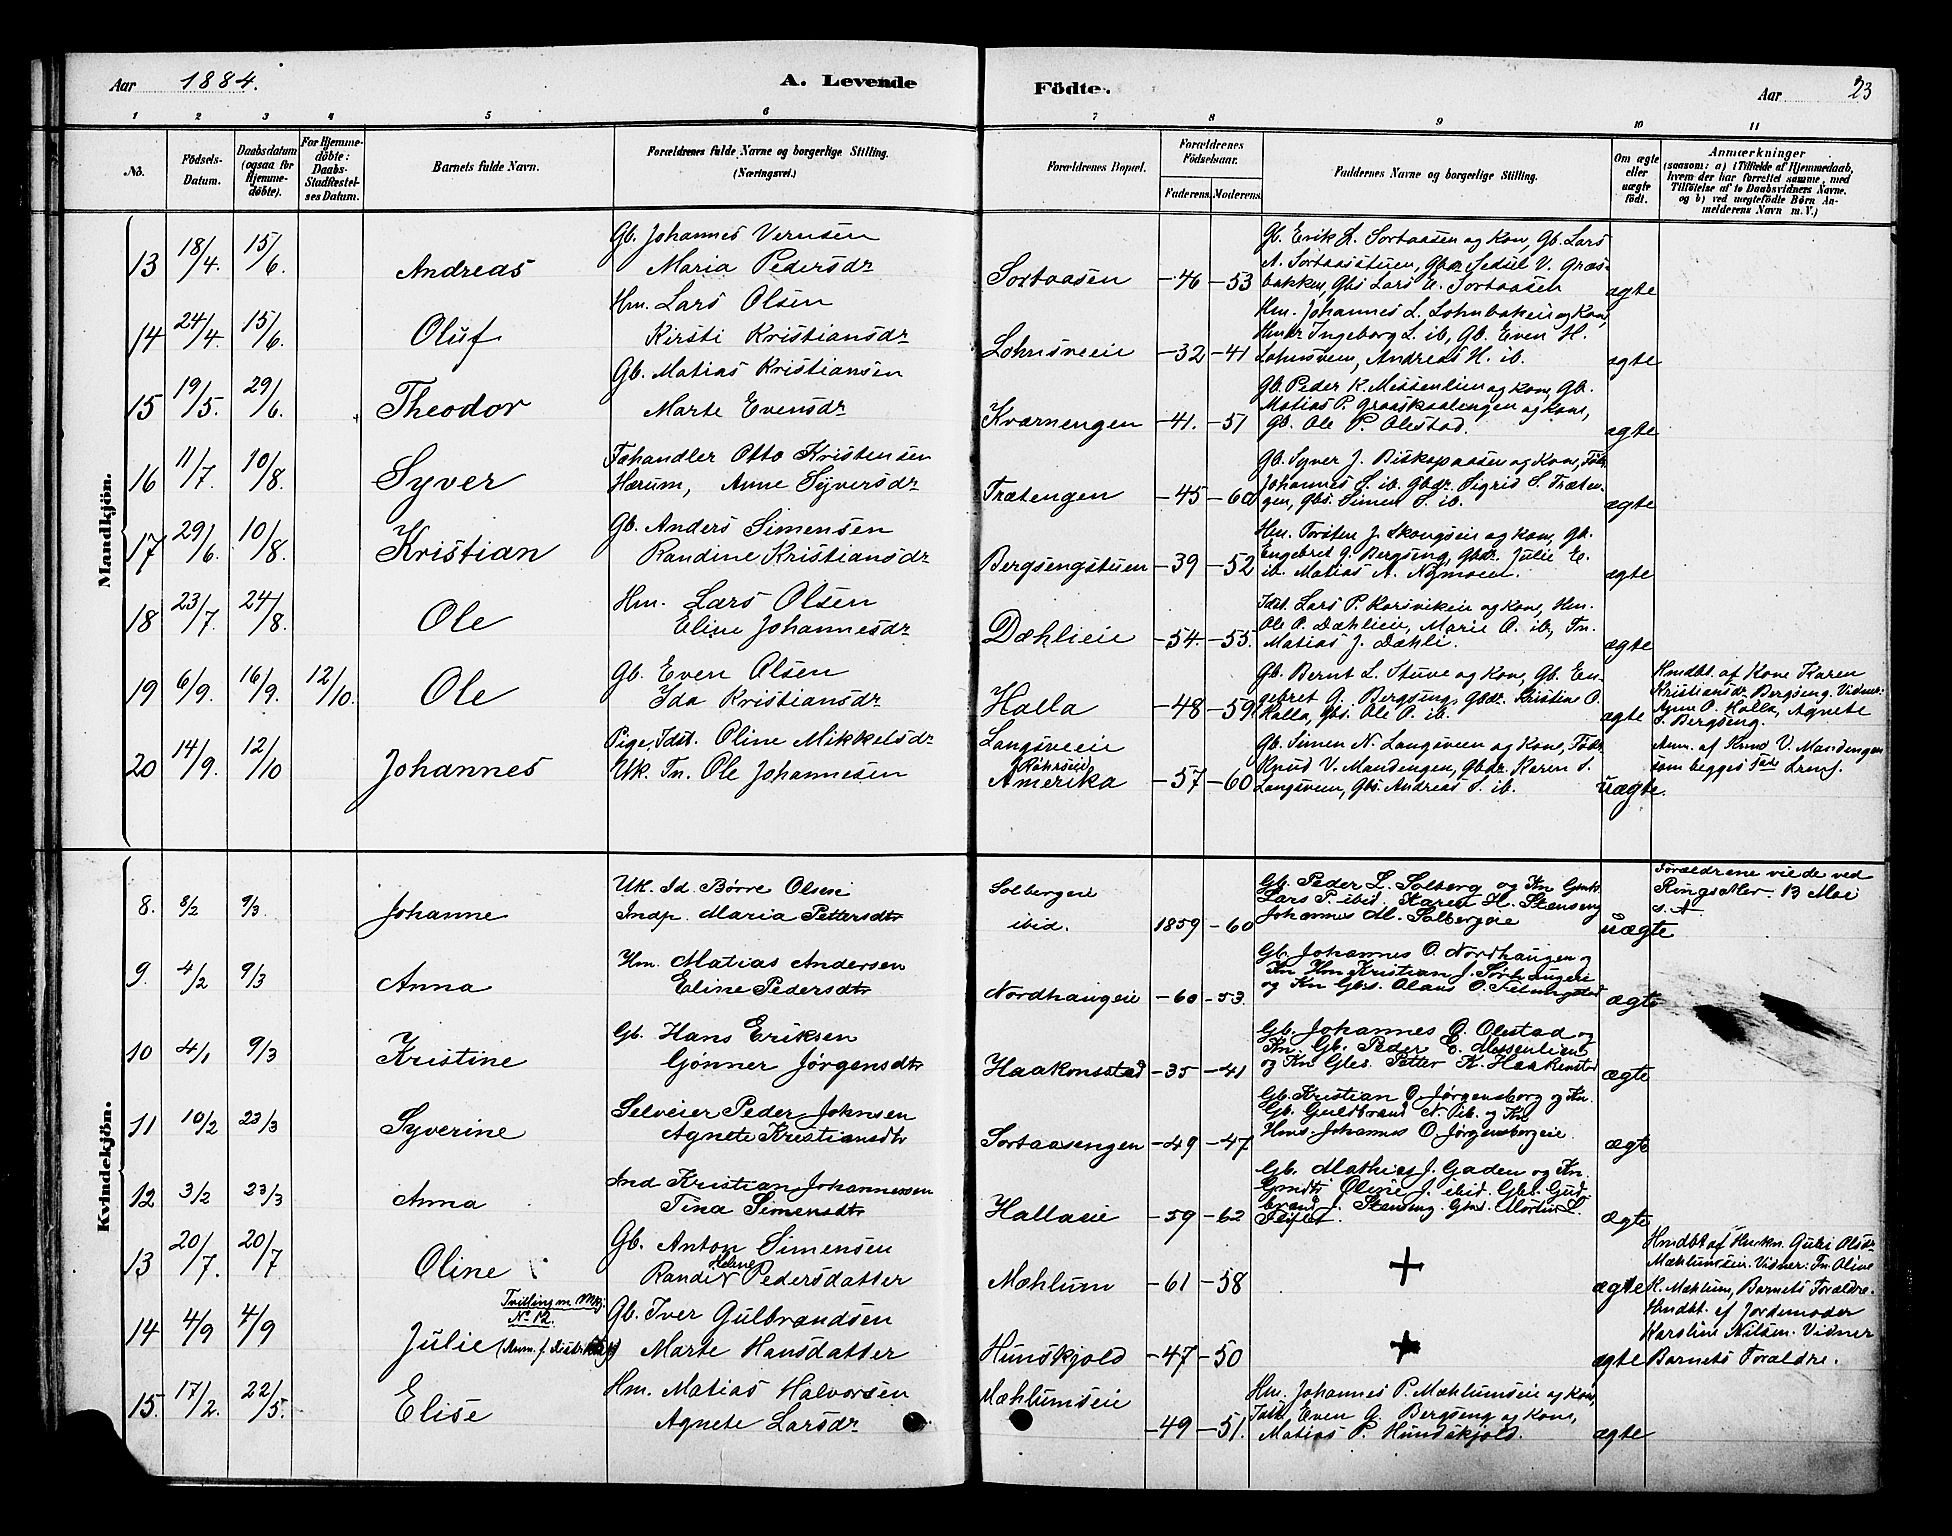 Aar 1884. A. Levende Födte. Aar 23
1 2 3 4 5 6 7 8 9 10 11
No. Födsels-Datum. Daabsdatum (ogsaa for Hjemme-döbte). For Hjemme-döbte: Daabs-Stadfæstel-ses Datum. Barnets fulde Navn. Forældrenes fulde Navne og borgerlige Stilling. (Næringsvei.) Forældrenes Bopæl. Forældrenes Födselsaar. Faderens. Moderens. Faddernes Navne og borgerlige Stilling. Om ægte eller uægte födt. Anmærkninger (saasom: a) i Tilfælde af Hjemmedaab, hvem der har forrettet samme, med Tilföielse af to Daabsvidners Navne, og b) ved uægtefödte Börn An-melderens Navn m. V.)
Mandkjön.
13 18/4. 15/6. Andreas Gb. Johannes Vernsen
Maria Pedersdr Sortaasen -46 -53 ægte
Gb. Erik L. Sortaasen og Kon, Gb. Lars
A. Sortaasstuen, Gbdr Sedsel V. Græs-
bakken, Gbs Lars E. Sortaasen
14 24/4. 15/6. Oluf Hm. Lars Olsen
Kirsti Kristiansdr Lohnsveie -32 -41 ægte
Hm. Johannes L. Lohnbakein og Kon,
Hmdr Ingeborg L. ib, Gb. Even H.
Lohnsveen, Andreas H. ib.
15 19/5. 29/6. Theodor Gb. Matias Kristiansen
Marte Evensdr Kværnengen -41. -51 ægte
Gb. Peder K. Messenlien og Kon, Gb.
Matias P. Graaskaalengen og Kone,
Gb. Ole P. Olestad.
16 11/7. 10/8. Syver Fæhandler Otto Kristensen
Hærum, Anne Syversdr Trætengen -45 -60 ægte
Gb. Syver J. Biskopaasen og Kone,
Johannes S. ib. Gbdr. Sigrid S. Træten-
gen, Gbs. Simen S. ib.
17 29/6. 10/8. Kristian Gb. Anders Simensen
Randine Kristiansdr Bergsengstuen -39 -52 ægte
Hm. Torsten J. Skougseie og Kone, Gb.
Engebret G. Bergseng, Gbdr. Julie E.
ib. Matias A. Nymoen.
18 23/7. 24/8. Ole Hm. Lars Olsen
Eline Johannesdr Dæhlieie -54. -55. ægte
Idst. Lars P. Korsvikeie og Kone, Hm.
Ole P. Dæhlieie, Marie O. ib, Tn.
Matias J. Dæhli.
19 6/9. 16/9. 12/10. Ole Gb. Even Olsen
Ida Kristiansdr Halla -48 -59 ægte
Gb. Bernt L. Stuve og Kone, Gb. En-
gebret G. Bergseng, Gbdr. Kristine O.
Halla, Gbs. Ole O. ib.
Hmdbt. af Kone Karen
Kristiansdr. Bergseng. Vidner:
Agne O. Halla, Agnete
S. Bergseng.
20 14/9. 12/10 Johannes Pige, Idst. Oline Mikkelsdr
Uk. Tn. Ole Johannesen Langsveeie
Amerika -57 -60 uægte.
Gb. Simen N. Langsveen og Kone,
Knud V. Mandengen, Gbdr. Karen S.
Langsveen, Gbs. Andreas S. ib.
Anm. af Knud V. Mandengen
som begges 1ste
Kvindekjön.
8. 8/2 9/3 Johanne Uk. Sd. Börre Olsen
Indp. Maria Pettersdtr Solbergeie
ibid. 1859 -60 uægte
Gb. Peder L. Solberg og Kn
Lars P. ibid. Karen H. Stenseng
Johannes M. Solbergeie
Forældrene viede ved
Ringsaker 13 Mai
s. A
9. 4/2 9/3 Anna Hm. Matias Andersen
Eline Pedersdtr Nordhaugeie -60 -53. ægte
Gb. Johannes O. Nordhaugen og
Kn Hm Kristian J. Sörhaugeie
og Kn Gbs. Olaus O.
10 4/1 9/3 Kristine Gb. Hans Eriksen
Gjönner Jörgensdtr Haakonsstad -35 -41 ægte
Gb. Johannes O. Olestad og
Kn. Gb. Peder E. Messenlien
og Kn Gbs. Petter K. Haakenstad
11 10/2 23/3 Syverine Selveier Peder Johnsen
Agnete Kristiansdtr Sortaasengen -49 -47 ægte
Gb. Kristian O Jörgensborg og Kn.
Gb. Guldbrand N. ib. og Kn
Hms. Johannes O. Jörgensborgeie.
12 3/2 23/3 Anna Ind Kristian Johannessen
Tina Simensdtr Hallaeie -59 -62 ægte
Gb. Mathias J. Gaden og Kn.
Gmdtr Oline J. ibid. Gbs. Gud
brand J. Stenseng. Gms. Morten L.
13 20/7. 20/7 Oline Gb. Anton Simensen
Randi Helene Pedersdatter Mæhlum -61 -58 + ægte
Hmdbt af Huskn. Guri Olsdr
Mæhlumseie. Vidner: Fn. Oline
K. Mæhlum, Barnets Forældre.
14 4/9 4/9 Julie Tvilling m. Mkj.
No 12. Gb. Iver Gulbrandsen
Marte Hansdatter Hunskjold -47 -50 + ægte
Hmdbt. af Jordemoder
Karoline Nilsen. Vidner
Barnets Forældre.
15. 17/2. 22/5. Elise Hm. Matias Halvorsen
Agnete Larsdr Mæhlumseie -49 -51. ægte
Hm. Johannes P. Mæhlumseie og Kone,
Idst. Even G. Bergseng og Kone,
Matias P. Hundskjold.